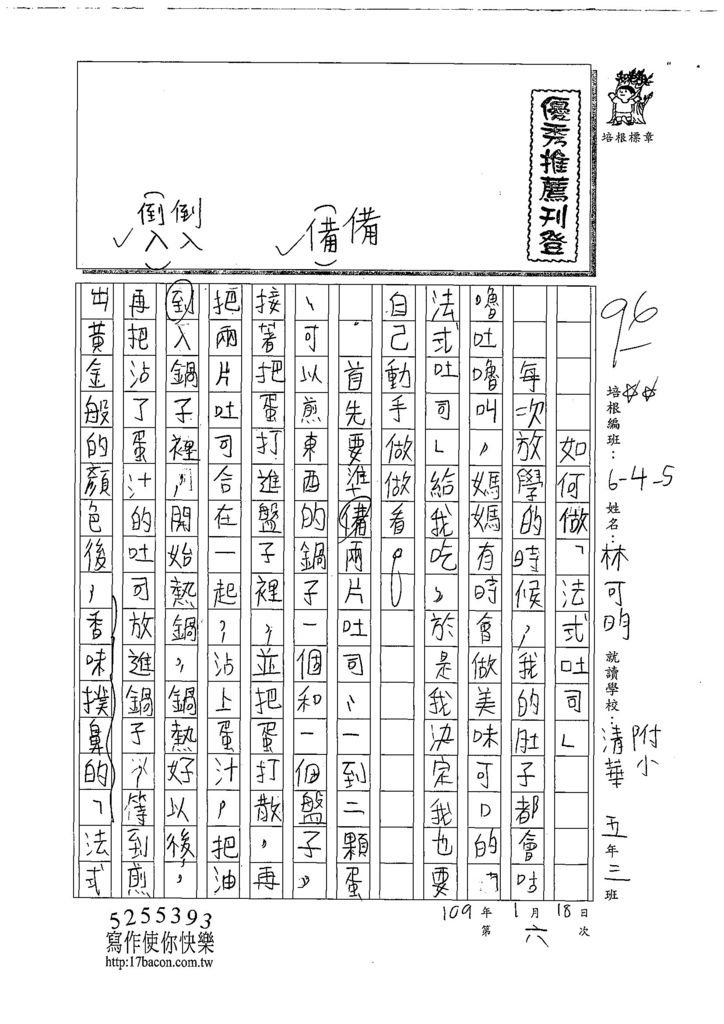 培根標章
優秀推薦刊登
備備
倒倒
入入
96
培根編班：6-4-5 姓名：林可昀 就讀學校：清華附小 五年三班
如何做「法式吐司」
每次放學的時候，我的肚子都會咕
嚕吐嚕叫，媽媽有時會做美味可口的「
法式吐司」給我吃，於是我決定我也要
自己動手做做看。
首先要準備兩片吐司、一到二顆蛋
、可以煎東西的鍋子一個和一個盤子，
接著把蛋打進盤子裡，並把蛋打散，再
把兩片吐司合在一起，沾上蛋汁，把油
到入鍋子裡，開始熱鍋，鍋熱好以後，
再把沾了蛋汁的吐司放進鍋子，等到煎
出黃金般的顏色後，香味撲鼻的「法式
109年1月18日
第六次
5255393
寫作使你快樂
http:17bacon.com.tw